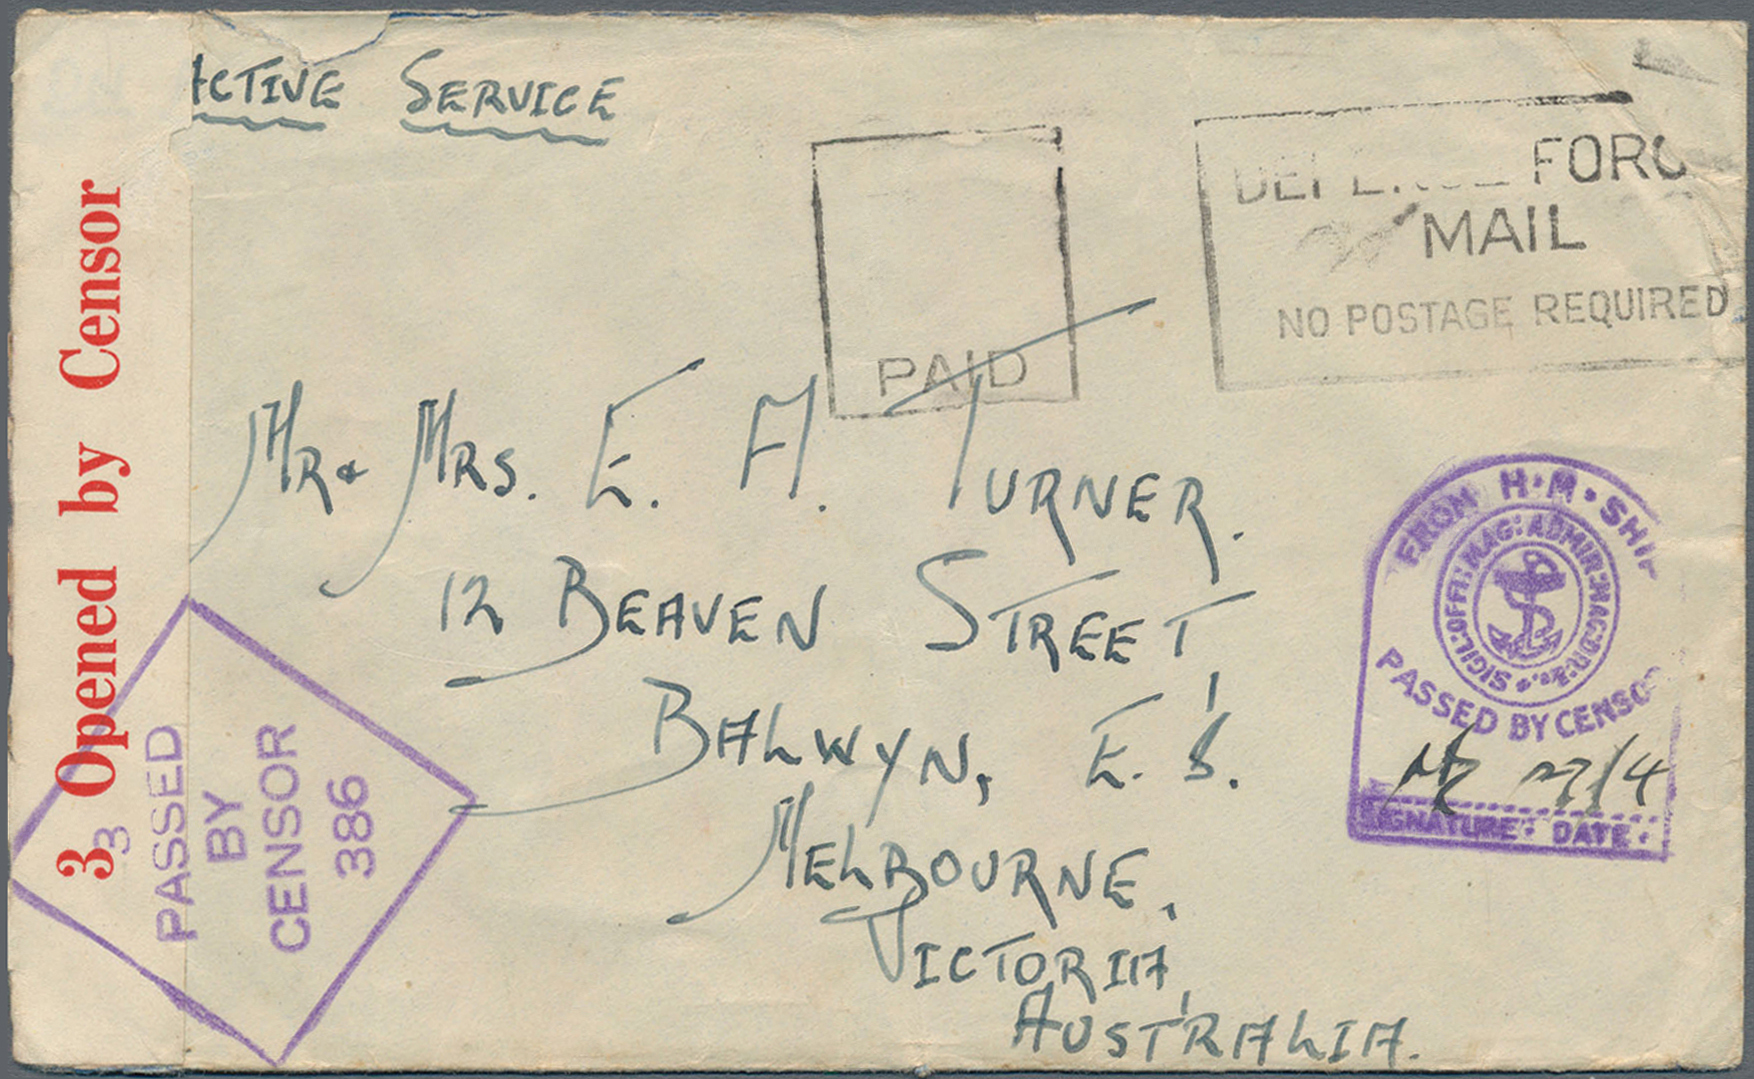 ACTIVE SERVICE
PAID
DEFENCE FORC
MAIL
NO POSTAGE REQUIRED
Mr & Mrs. E. A. TURNER.
12 BEAVEN STREET,
BALWYN, E. 8.
MELBOURNE,
VICTORIA,
AUSTRALIA.
3 Opened by Censor
3
PASSED
BY
CENSOR
386
FROM H·M·SHIP
SIGIL: OFFI: MAG: ADMIR: MAG: BRI: &c.
PASSED BY CENSOR
27/4
SIGNATURE· DATE·